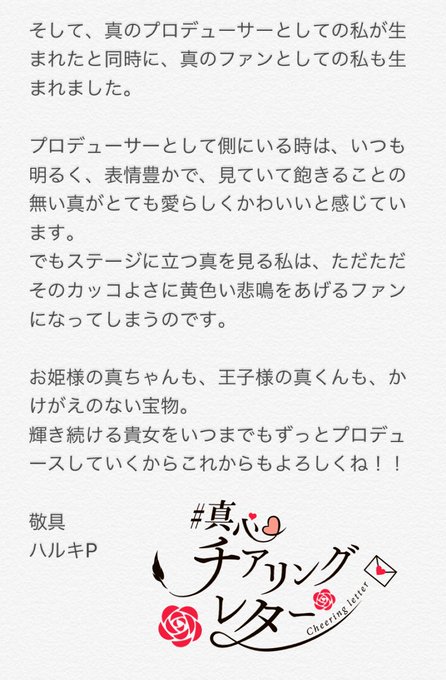 そして、真のプロデューサーとしての私が生
まれたと同時に、真のファンとしての私も生
まれました。
プロデューサーとして側にいる時は、いつも
明るく、表情豊かで、見ていて飽きることの
無い真がとても愛らしくかわいいと感じてい
ます。
でもステージに立つ真を見る私は、ただただ
そのカッコよさに黄色い悲鳴をあげるファン
になってしまうのです。
お姫様の真ちゃんも、王子様の真くんも、か
けがえのない宝物。
輝き続ける貴女をいつまでもずっとプロデュ
ースしていくからこれからもよろしくね！！
敬具
ハルキP
#真心
チアリング
レター
Cheering letter